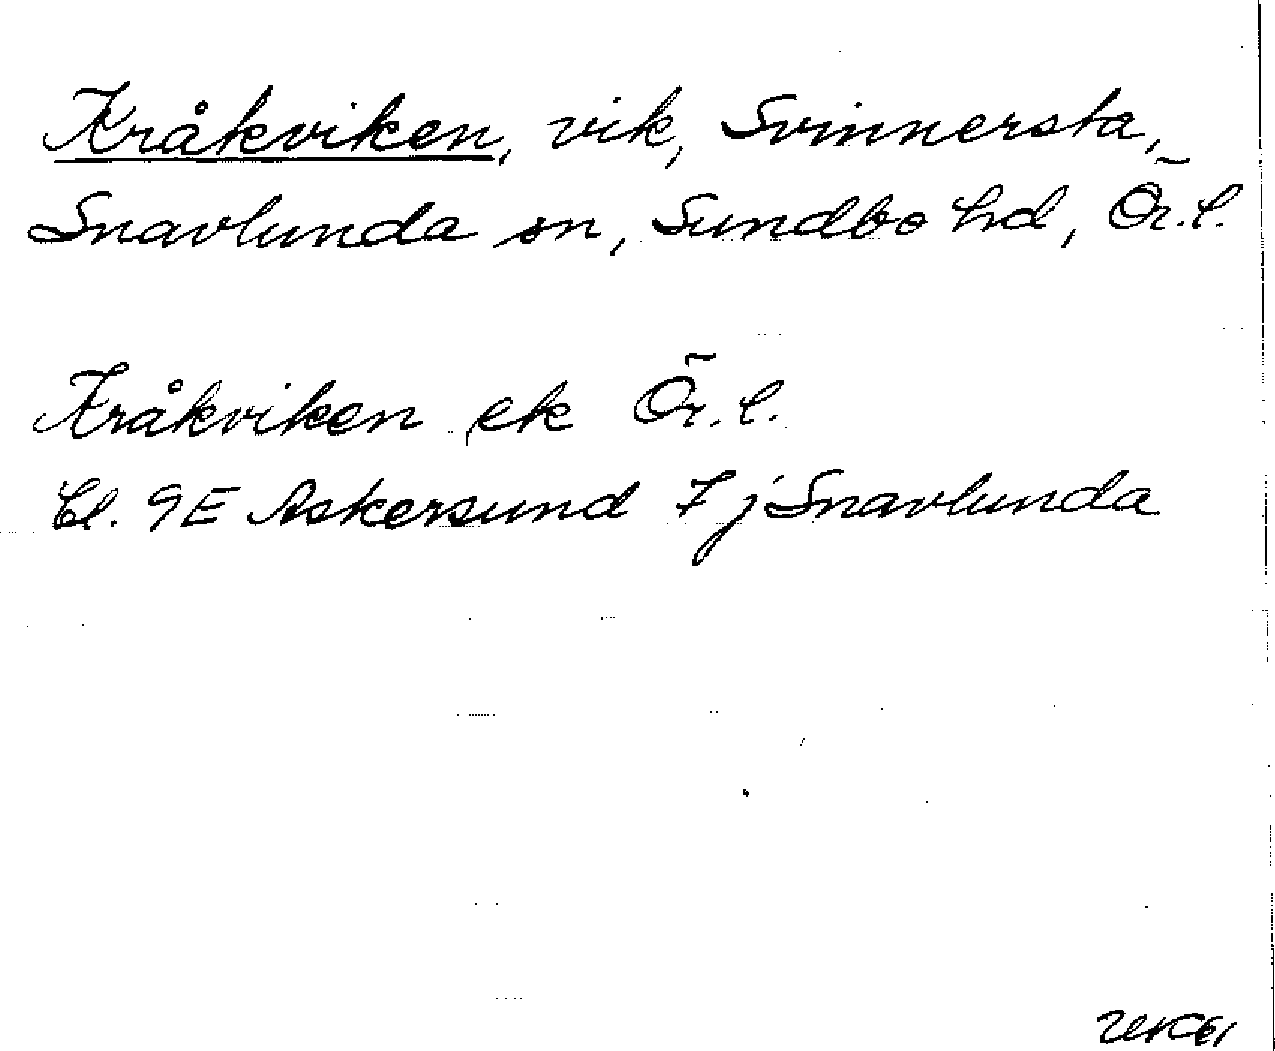 Kråkviken, vik, Svinnersta,
Snavlunda sn, Sundbo hd, Ör. l.
Kråkviken ek Ör. l.
Bl. 9E Askersund 7j Snavlunda